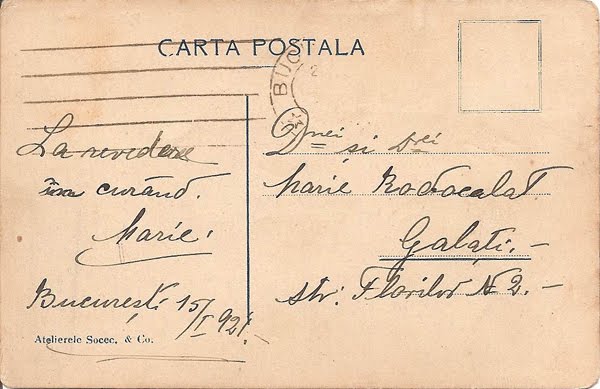 CARTA POSTALA
BUC
2
La revedere
în curând.
Marie.
București 15/I 921.
Atelierele Socec, & Co.
Dnei si Drei
Marie Rodocalat
Galați.-
str: Florilor N 2.-